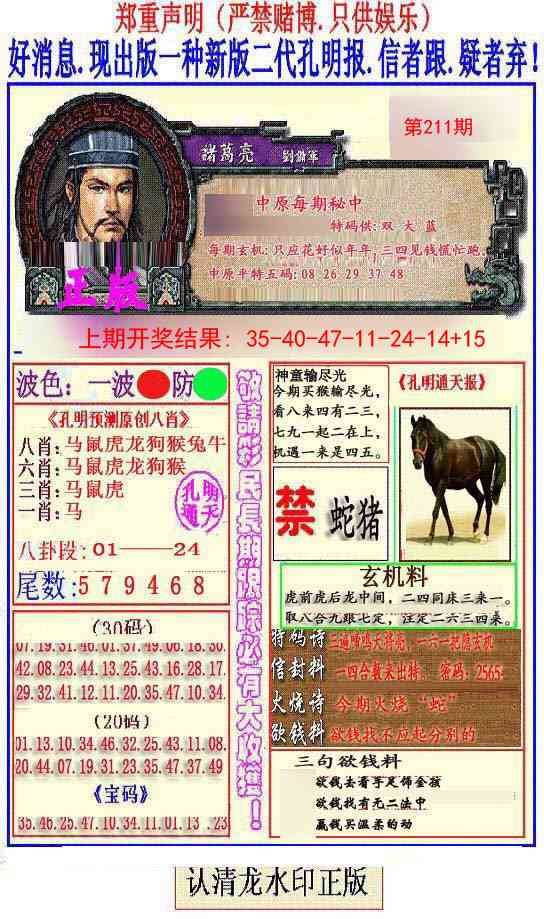 郑重声明（严禁赌博.只供娱乐）
好消息.现出版一种新版二代孔明报.信者跟.疑者弃！
第211期
諸葛亮 劉備軍
中原每期秘中
特码供:双 大 蓝
每期玄机:只应花好似年年,三四见钱慌忙跑.
中原平特五码:08 26 29 37 48
正版
上期开奖结果: 35-40-47-11-24-14+15
波色: 一波 防
《孔明预测原创八肖》
八肖:马鼠虎龙狗猴兔牛
六肖:马鼠虎龙狗猴
三肖:马鼠虎
一肖:马
孔明
通天
八卦段:01——24
尾数:579468
(30码)
07.19.31.46.01.37.49.06.18.30.
42.08.23.44.13.25.43.16.28.17.
29.32.41.12.11.20.35.47.10.34.
(20码)
01.13.10.34.46.32.25.43.11.08.
20.44.07.19.31.23.35.47.37.49
《宝码》
35.46.25.47.10.34.11.01.13 .23
敬請彩民長期跟踪必有大收獲！
神童输尽光
今期买猴输尽光，
看八来四有二三，
七九一起二在上，
机遇一来是四五。
《孔明通天报》
禁 蛇猪
玄机料
虎前虎后龙中间，二四同床三来一。
取八合九跟七定，注定二六三四来。
特码诗
信封料 一四合数来出特. 密码: 2565.
火烧诗 今期火烧“蛇”
欲钱料 欲钱找不应起分别的
三句欲钱料
欲钱去看手足饰金孩
欲钱找有无二法中
赢钱买温柔的动
认清龙水印正版